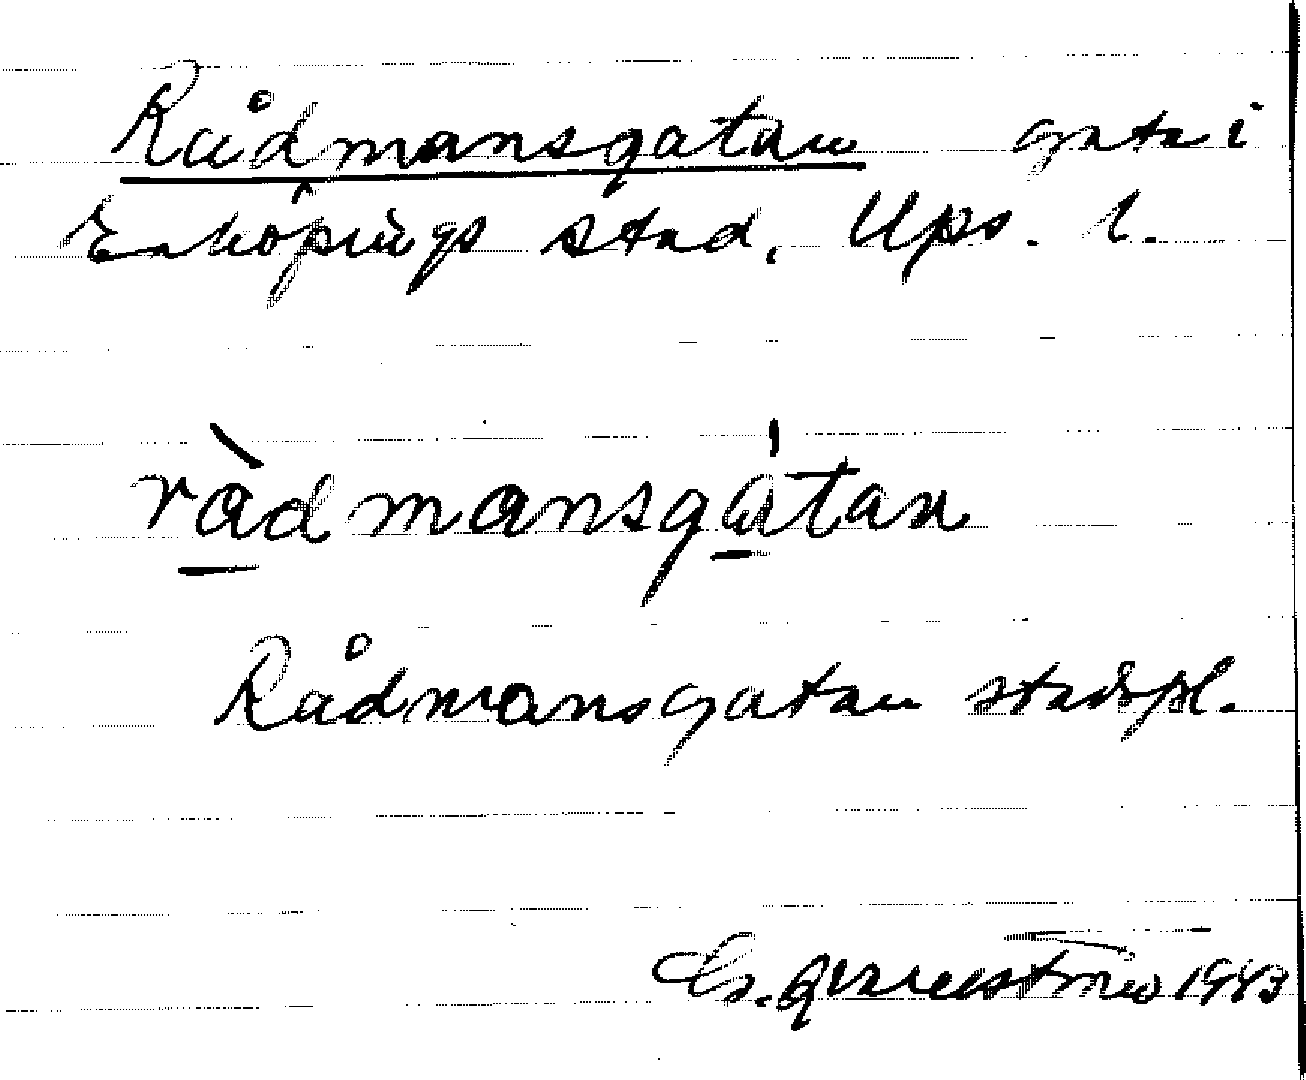 Rådmansgatan gata i
Enköpings stad, Ups. l.
rådmansgatan
Rådmansgatan stadspl.
1983